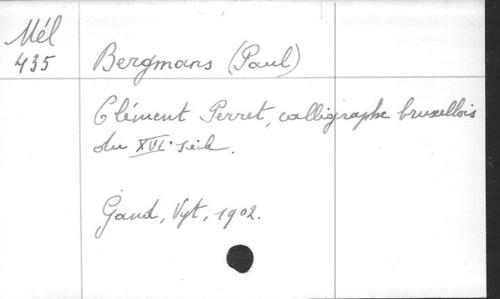 Mél
435
Bergmans (Paul)
Clément Perret, calligraphe bruxellois
du XVIe siècle.
Gand, Vyt, 1902.